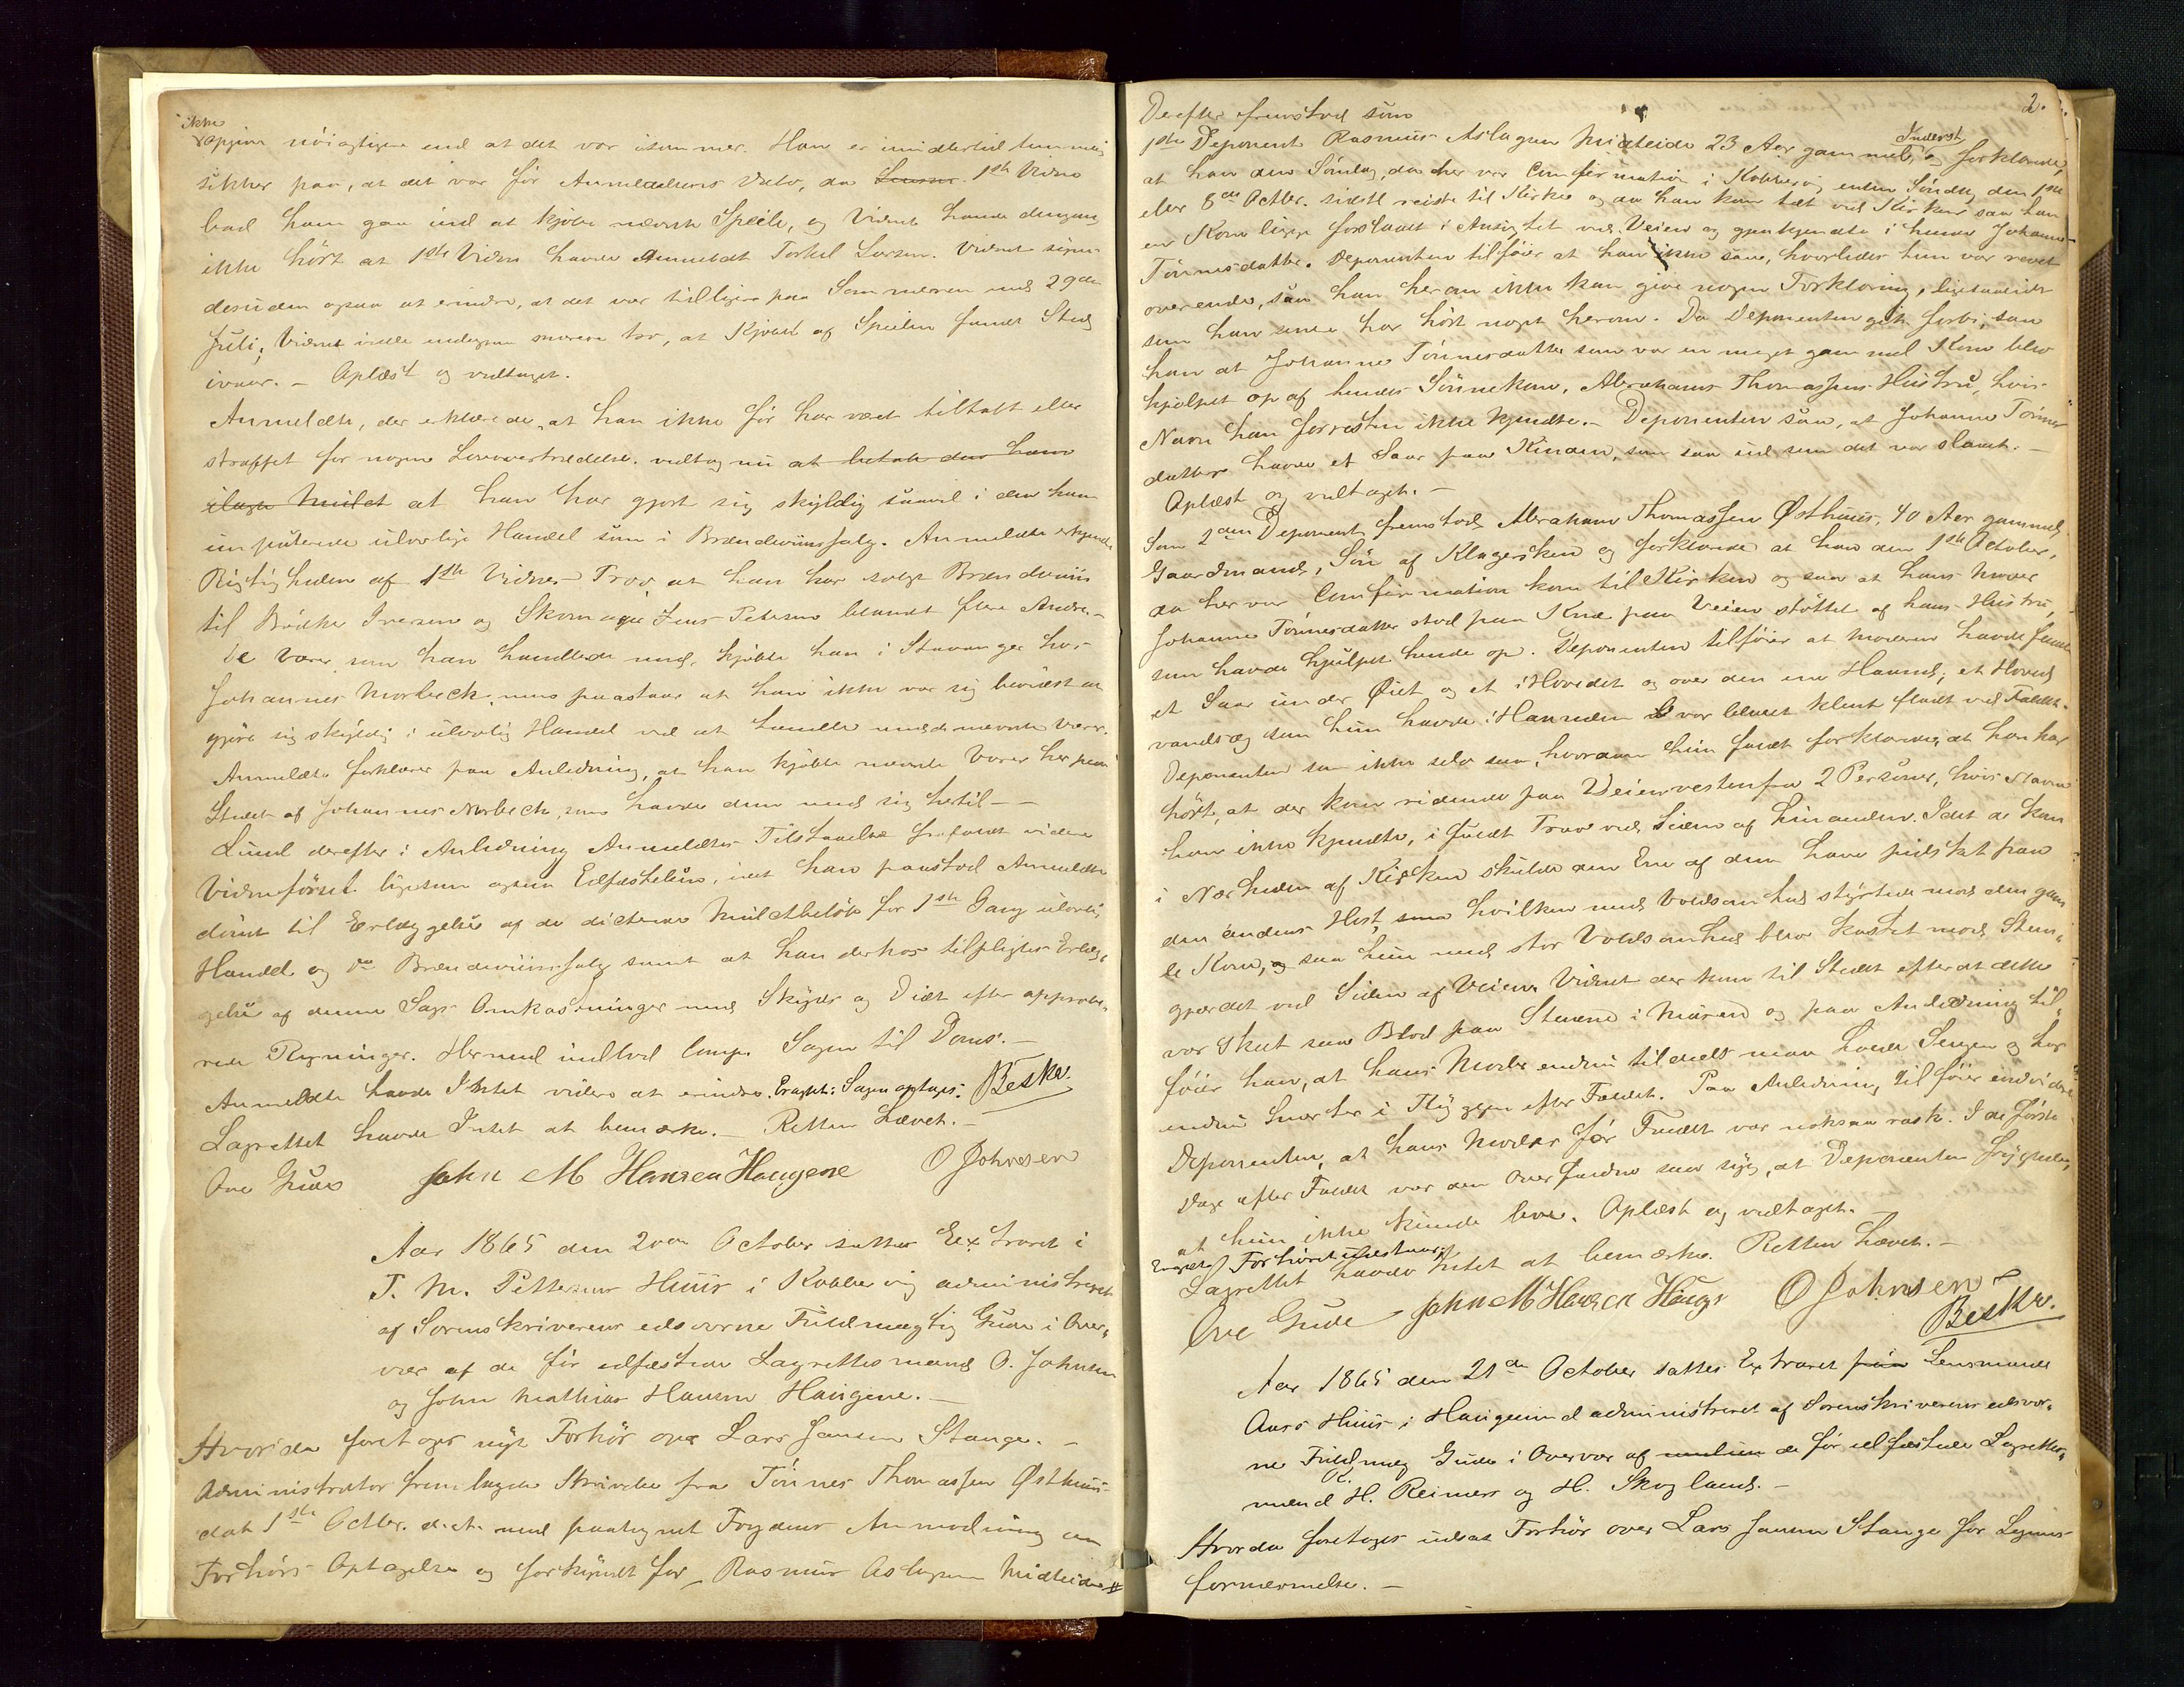 ikke
opgive nöiagtigere end at det var isommer. Han er imidlertid temmelig
sikker paa, at det var för Anmeldelsens Dato, da 1ste Vidne
bad ham gaa ind at kjöbe nævnte Speile, og Vidnet havde dengang
ikke hört at 1ste Vidne havde Anmeldt Torkel Larsen. Vidnet synes
desuden ogsaa at erindre, at det var tidligere paa Sommeren end 29de
Juli; Vidnet vilde endogsaa snarere tro, at Kjöbet af Speilen fandt Sted
ivaar. – Oplæst og vedtaget.
Anmeldte, der erklærede, at han ikke för har været tiltalt eller
straffet for nogen Lovovertrædelse, vedtog nu at betale den ham
ilagte Mulct at han har gjort sig skyldig saavel i den ham
imputerede ulovlige Handel som i Brændeviinssalg. Anmeldte erkjendte
Rigtigheden af 1ste Vidnes Prov at han har solgt Brændeviin
til Bödker Iversen og Skomager Jens Petersen blandt flere Andre. –
De Varer som han handlede med, kjöbte han i Stavanger hos
Johannes Morbeck, men paastaar at han ikke var sig bevidst at
gjöre sig skyldig i ulovlig Handel ved at handle med nævnte Varer.
Anmeldte forklarer paa Anledning, at han kjöbte nævnte Varer her paa
Stedet af Johannes Norbeck, som havde dem med sig hertil – –
Lund derefter i Anledning Anmeldtes Tilstaaelse frafaldt videre
Vidneförsel ligesom ogsaa Edfæstelsen, idet han paastod Anmeldte
dömt til Erlæggelse af de dicterede Mulctbelöb for 1ste Gang ulovlig
Handel og do Brændeviinssalg samt at han derhos tilpligtes Erlæg-
gelse af denne Sags Omkostninger med Skyds og Diæt efter approbe-
rede Regninger. Hermed indlod Comp. Sagen til Doms. –
Anmeldte havde Intet videre at erindre. Eragtet: Sagen optages. Beskr.
Lagrettet havde Intet at bemærke. – Retten hævet. –
Ove Gude John M Hansen Haugene O Johnsen
Aar 1865 den 20de October sattes Extraret i
T. M. Pettersens Huus i Kobbervig administreret
af Sorenskriverens edsvorne Fuldmægtig Gude i Over-
vær af de för edfæstede Lagrettesmænd O. Johnsen
og John Mathias Hansen Haugene. –
Hvorda foretoges nyt Forhör over Lars Jansen Stange. –
Administrator fremlagde Skrivelse fra Tönnes Thomassen Østhuus
dat 1ste Octbr. d. A. med paategnet Fogdens Anmodning om
Forhörs Optagelse og forkyndt for Rasmus Aslagsen Midteide #
2.
Derefter fremstod som
1ste Deponent Rasmus Aslagsen Midteide 23 Aar gammel, Inderst, og forklarede,
at han den Söndag, da her var Confirmation i Kobbervig enten Söndag den 1ste
eller 8de Octbr. sidstl reiste til Kirke og da han kom tæt ved Kirken saa han
en Kone ligge forslaaet i Ansigtet ved Veien og gjenkjendte i hende Johanne
Tönnesdatter. Deponenten tilföier at han ikke saa, hvorledes hun var revet
overende, saa han herom ikke kan give nogen Forklaring, ligesaalidt
som han senere har hört noget herom. Da Deponenten gik forbi, saa
han at Johanne Tönnesdatter som var en meget gammel Kone blev
hjulpet op af hendes Sönnekone, Abrahams Thomassens Hustru, hvis
Navn han forresten ikke kjendte. – Deponenten saa, at Johanne Tönnes-
datter havde et Saar paa Kinden, som saa ud som det var slaaet. –
Oplæst og vedtaget. –
Som 2den Deponent fremstod Abraham Thomassen Østhuus, 40 Aar gammel
Gaardmand, Sön af Klagersken og forklarede at han den 1ste October,
da her var Confirmation kom til Kirken og saa at hans Moder
Johanne Tönnesdatter stod paa Knæ paa Veien stöttet af hans Hustru,
som havde hjulpet hende op. Deponenten tilföier at Moderen havde faaet
et Saar under Øiet og et i Hovedet og over den ene Haand; et Hoved-
vandsæg som hun havde i Haanden var blevet klemt fladt ved Faldet.
Deponenten som ikke selv saa, hvordan hun faldt forklarede, at han har
hört, at der kom ridende paa Veien vestenfra 2 Personer, hvis Navne
han ikke kjendte, i fuldt Trav ved Siden af hinanden. Idet de kom
i Nærheden af Kirken skulde den Ene af dem have pidsket paa
den andens Hest, hvilken med Voldsomhed styrtede mod den gam-
le Kone, og saa hun med stor Voldsomhed blev kastet mod Steen-
gjerdet ved Siden af Veien. Vidnet der kom til Stedet efterat dette
var skeet saa Blod paa Stenene i Muren og paa Anledning til-
föier han, at hans Moder endnu tildeels maa holde Sengen og har
endnu Smerter i Ryggen efter Faldet. Paa Anledning tilföier endvidere
Deponenten, at hans Moder för Faldet var noksaa rask. I de förste
Dage efter Faldet var den Overfaldne saa syg, at Deponenten frygtede,
at hun ikke kunde leve. Oplæst og vedtaget. –
Eragtet: Forhöret udestaar.
Lagrettet havde Intet at bemærke. Retten hævet. –
Ove Gude John M Hansen Hauge O Johnsen
Beskr.
Aar 1865 den 21de October sattes Extraret paa Lensmand
Aars Huus i Haugesund administreret af Sorenskriverens edsvor-
ne Fuldmæg Gude i Overvær af de för edfæstede Lagrettes-
mænd H. R. Reimers og H. Skogland. –
Hvorda foretoges udsat Forhör over Lars Jansen Stange for Legems-
fornærmelse. –